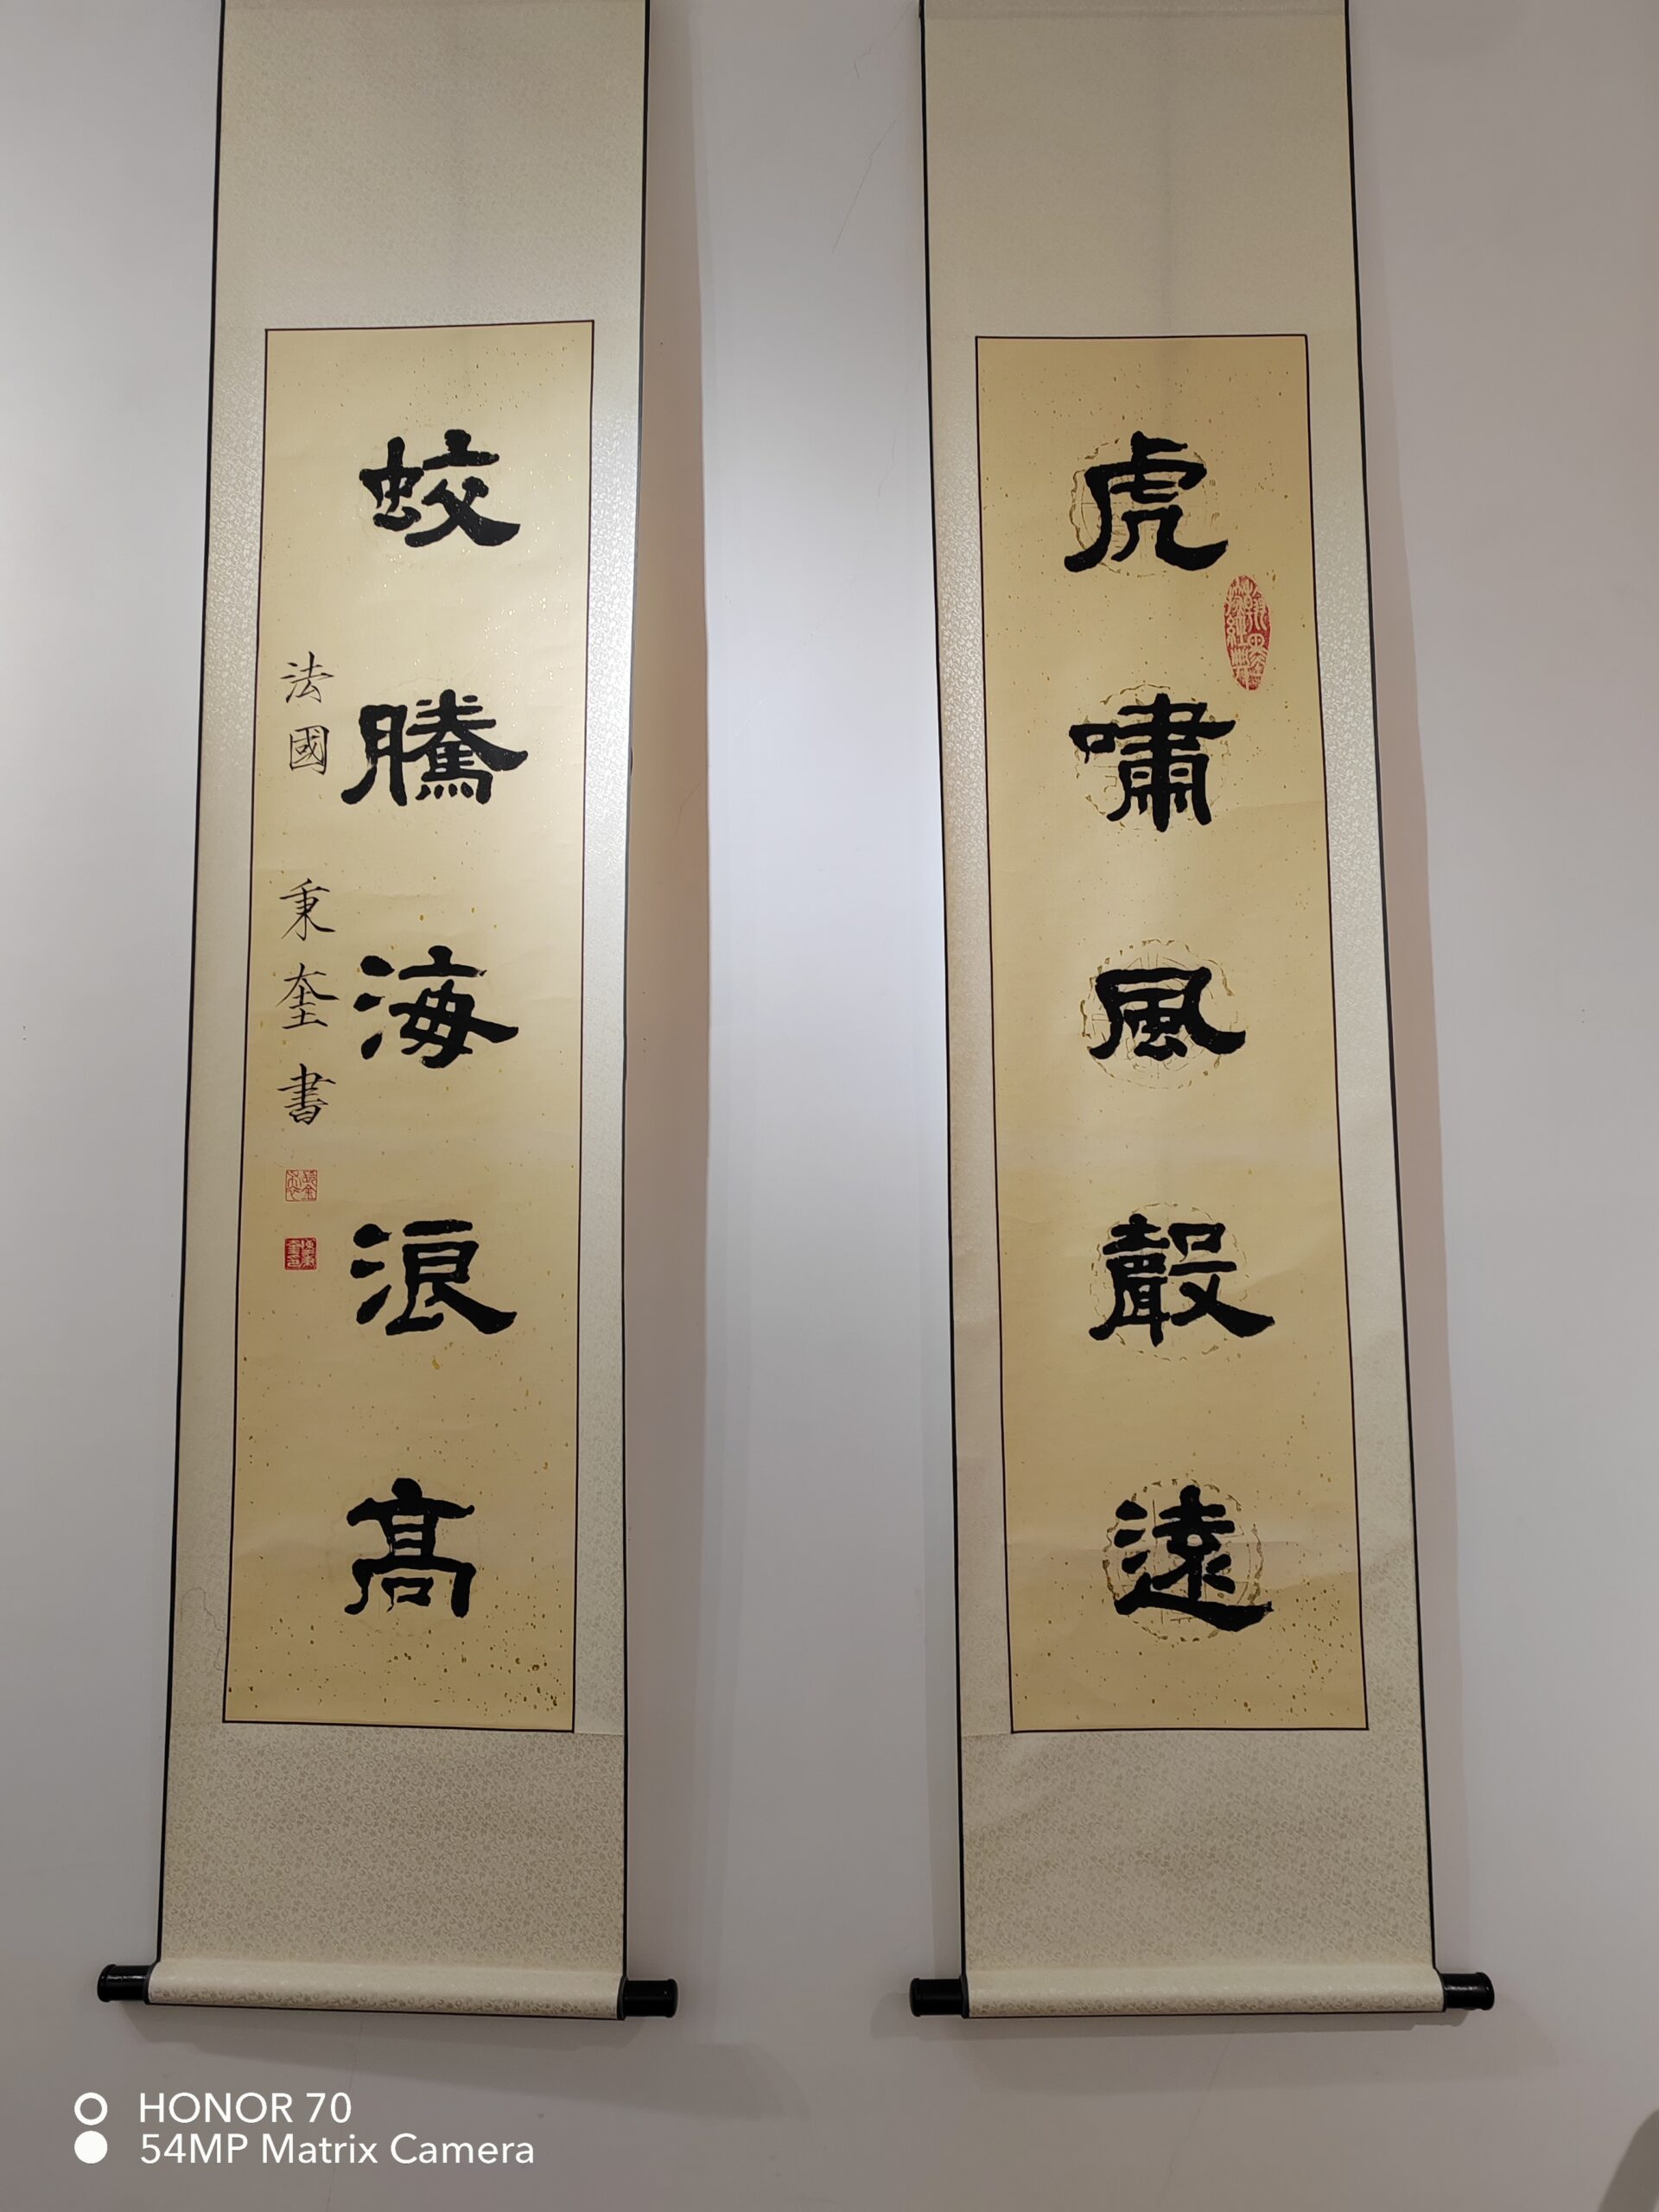 虎嘯風聲遠
蛟騰海浪高
法國 秉奎書
HONOR 70
54MP Matrix Camera